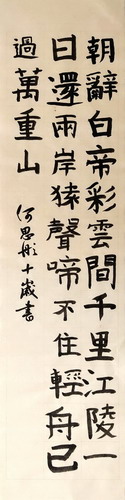 朝辭白帝彩雲間千里江陵一
日還兩岸猿聲啼不住輕舟已
過萬重山
何思彤十歲書